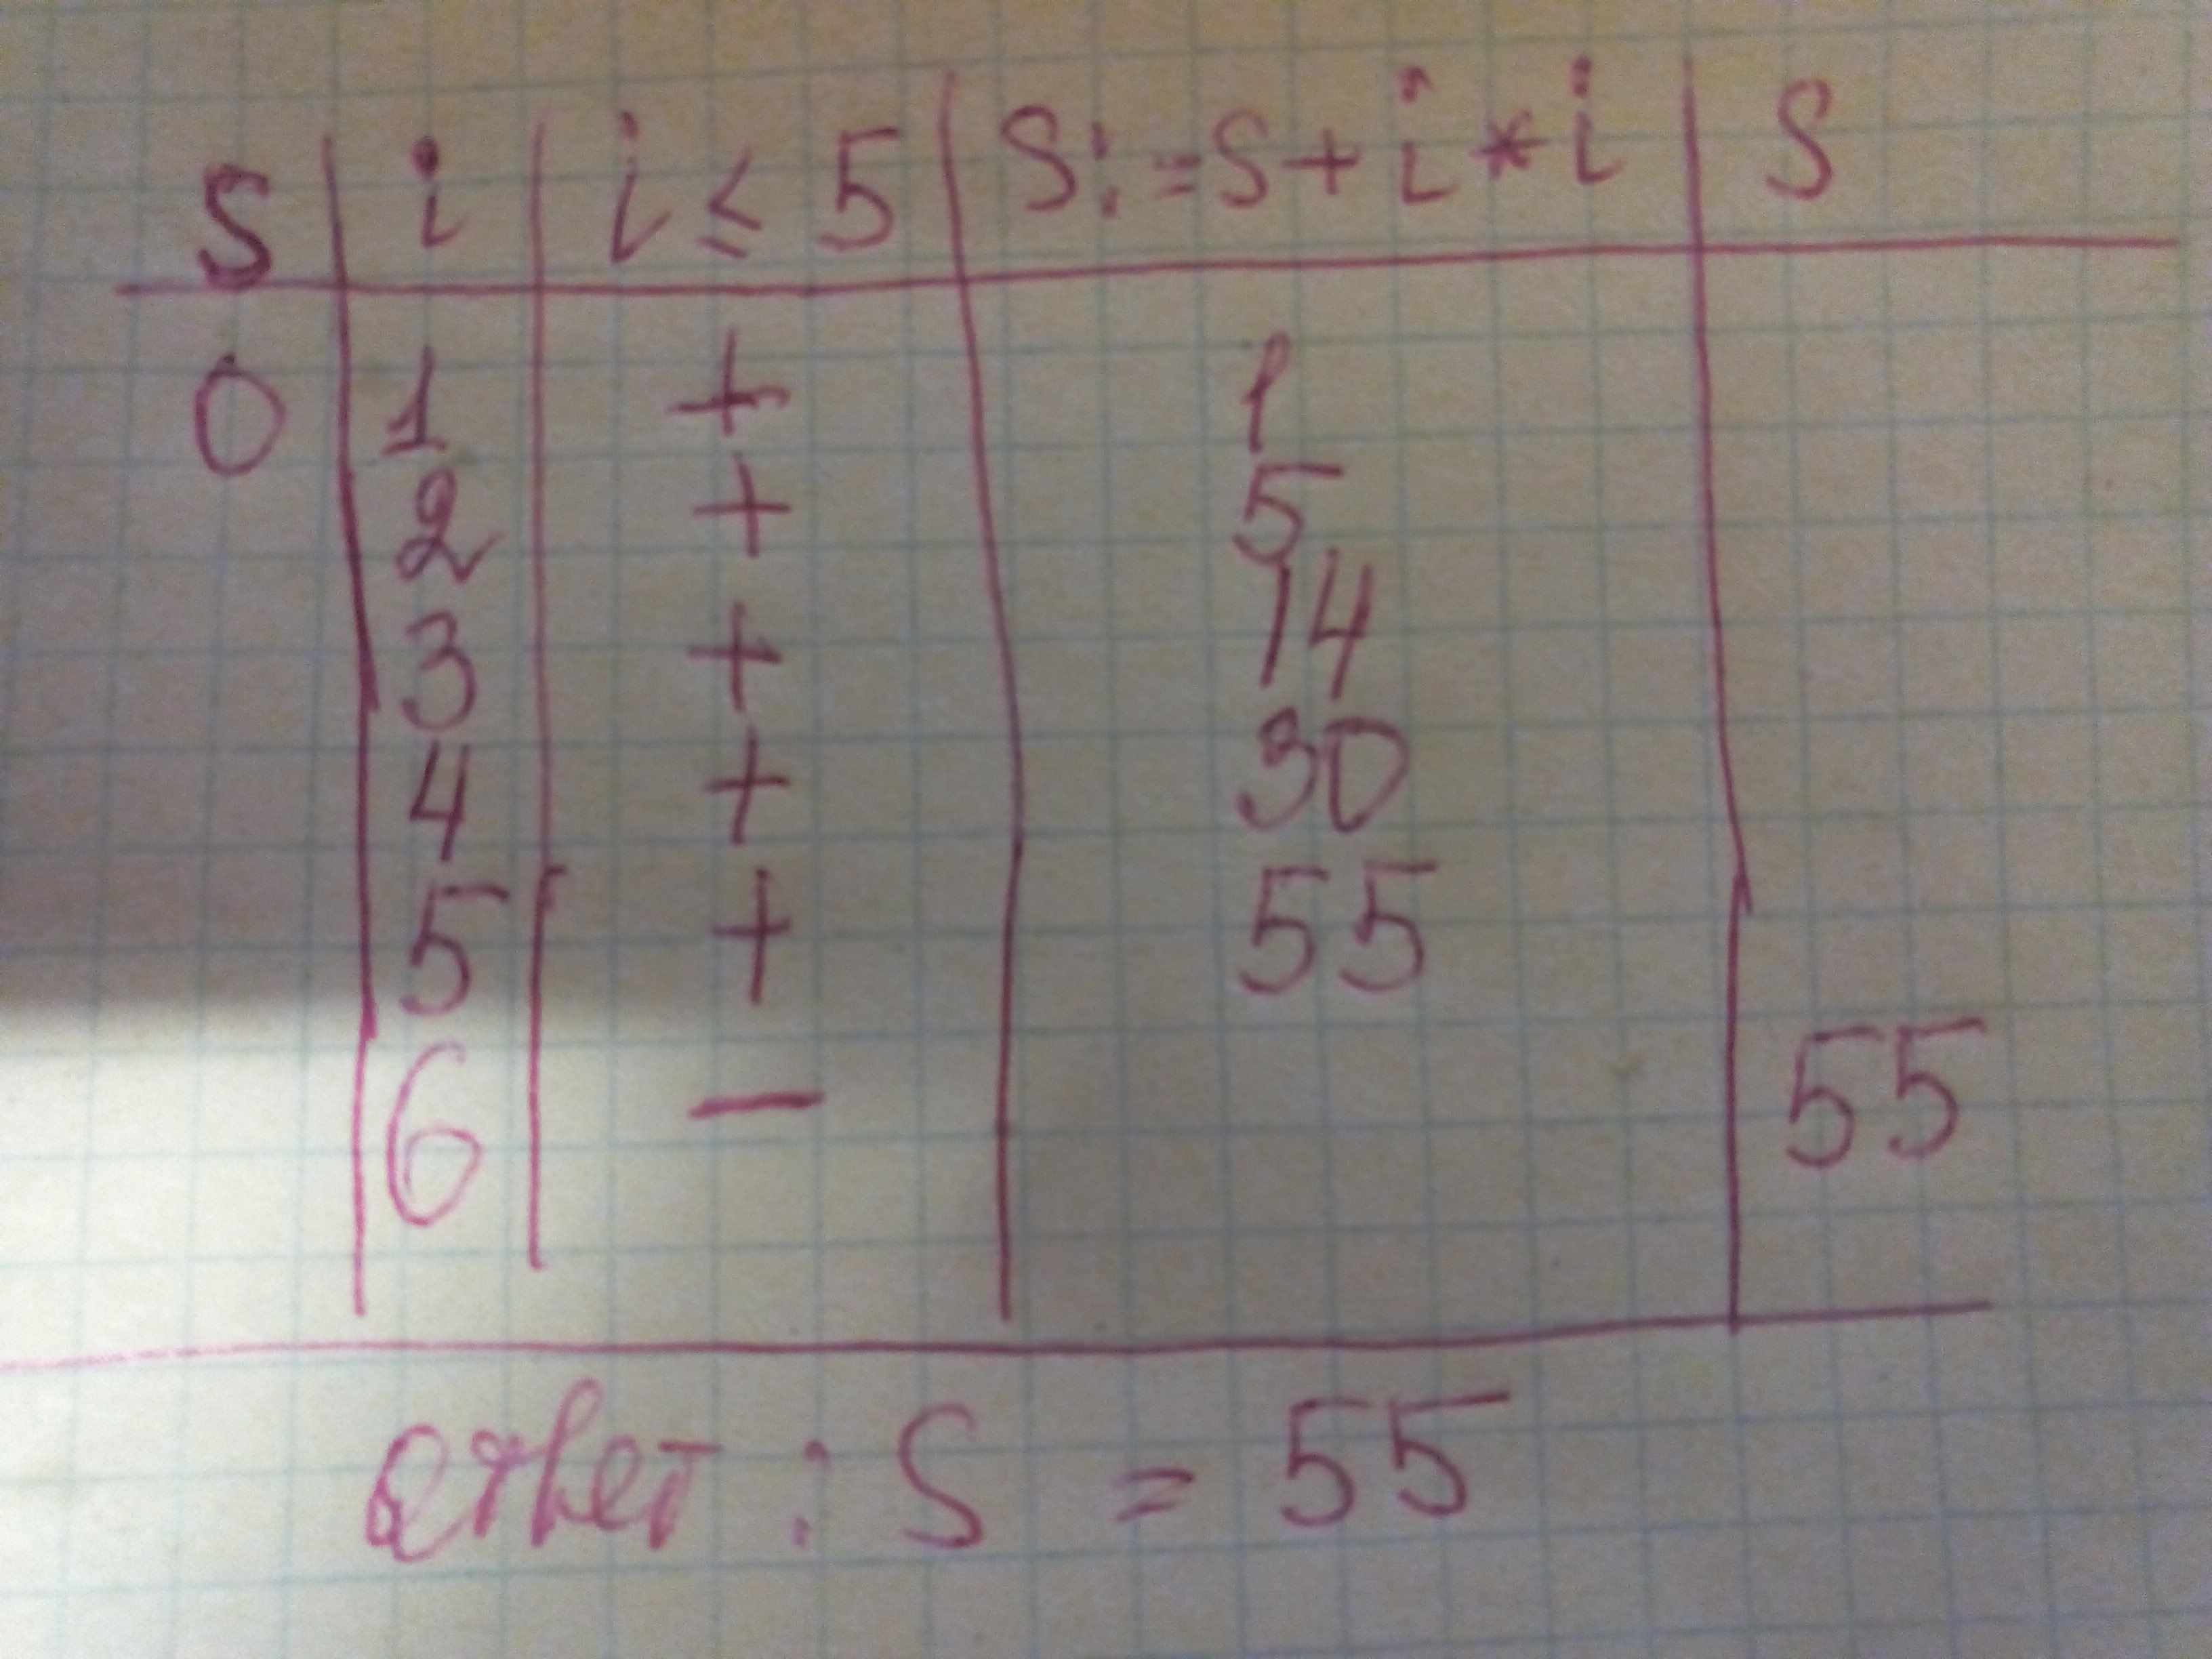 S i i ≤ 5 S:=S+i*i S
0 1 + 1
2 + 5
3 + 14
4 + 30
5 + 55
6 − 55
ответ : S = 55